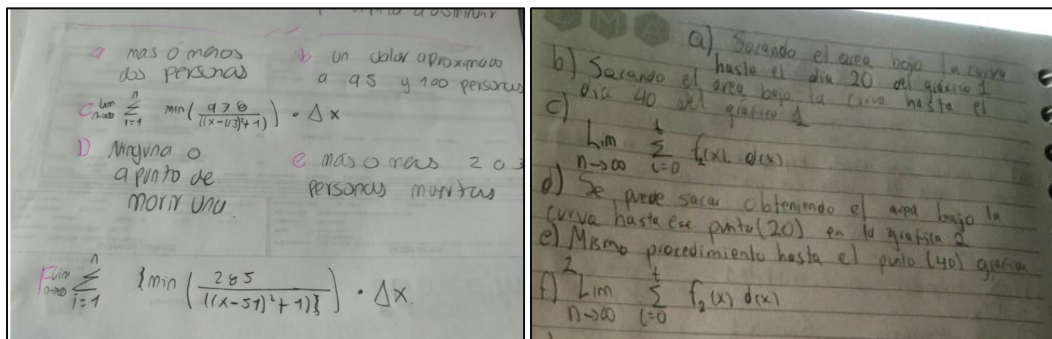 a mas o menos
dos personas
b un valor aproximado
a 95 y 100 personas
C lim n→∞ n Σ i=1 min( 978 / ((x-43)²+1) ) · Δx
D Ninguna o
apunto de
morir una.
e mas o menos 2 o 3
personas muertas
F lim n→∞ n Σ i=1 {min ( 285 / ((x-51)²+1)} ) · Δx.
a) Sacando el area bajo la curva
hasta el dia 20 del grafico 1
b) Sacando el area bajo la curva hasta el
dia 40 del grafico 1
c)
Lim n→∞ t Σ i=0 f₁(x). d(x)
d) Se puede sacar obteniendo el area bajo la
curva hasta ese punto (20) en la grafica 2
e) Mismo procedimiento hasta el punto (40) grafica
2
f) Lim n→∞ t Σ i=0 f₂(x) d(x)